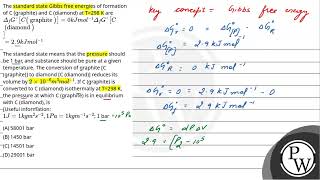 The standard state Gibbs free energies of formation
of C (graphite) and C (diamond) at T=298 K are
Δ_f G°[C( graphite )] = 0kJmol⁻¹Δ_f G°[C
(diamond)
)]
= 2.9kJmol⁻¹
The standard state means that the pressure should
be 1 bar, and substance should be pure at a given
temperature. The conversion of graphite [C
(graphite)] to diamond [C (diamond)] reduces its
volume by 2 × 10⁻⁶m³mol⁻¹. If C (graphite) is
converted to C (diamond) isothermally at T=298 K,
the pressure at which C (graphite) is in equilibrium
with C (diamond), is
(Useful information:
1J = 1kgm²s⁻², 1Pa = 1kgm⁻¹s⁻², 1 bar = 10⁵ Pa
(A) 58001 bar
(B) 1450
(C) 14501 bar
(D) 29001 bar
key concept = Gibbs free energy
ΔG° = ΔG°[P] − ΔG°R
ΔG° = 2.9 kJ mol⁻¹
ΔG° = 2.9 kJ mol⁻¹ − 0
ΔG° = 2.9 kJ mol⁻¹
ΔG° = ΔP ΔV
2.9 = (P₂ − 10⁵
PW